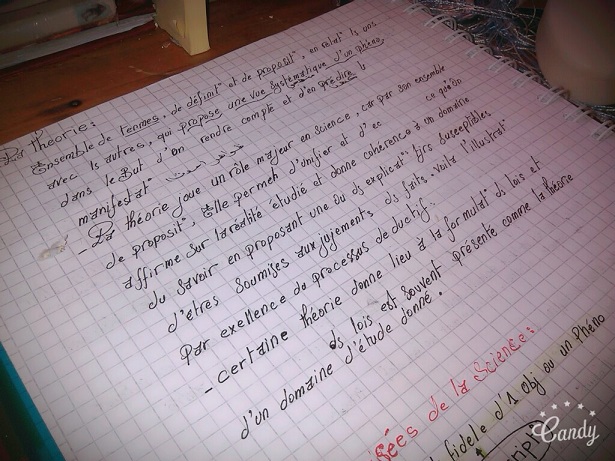 La théorie:
Ensemble de termes, de définit° et de proposit°, en relat° ls uns
avec ls autres, qui propose une vue systématique d'un phéno,
dans le But d'en rendre compte et d'en prédire l
manifestat°
- La théorie joue un rôle majeur en science, car par son ensemble
de proposit°, Elle permet d'unifier et d'ec ce qu'on
affirme sur la réalité étudié et donne cohérence à un domaine
du savoir en proposant une où ds explicat° tjrs susceptibles
d'êtres soumises aux jujements ds faits. voila l'illustrat°
Par exellence du processus deductif.
- certaine théorie donne lieu à la formulat° ds lois et
ds lois est souvent présenté comme la théorie
d'un domaine d'étude donné.
sées de la Science:
fidele d'1 obj ou un Phéno
cripti
Candy